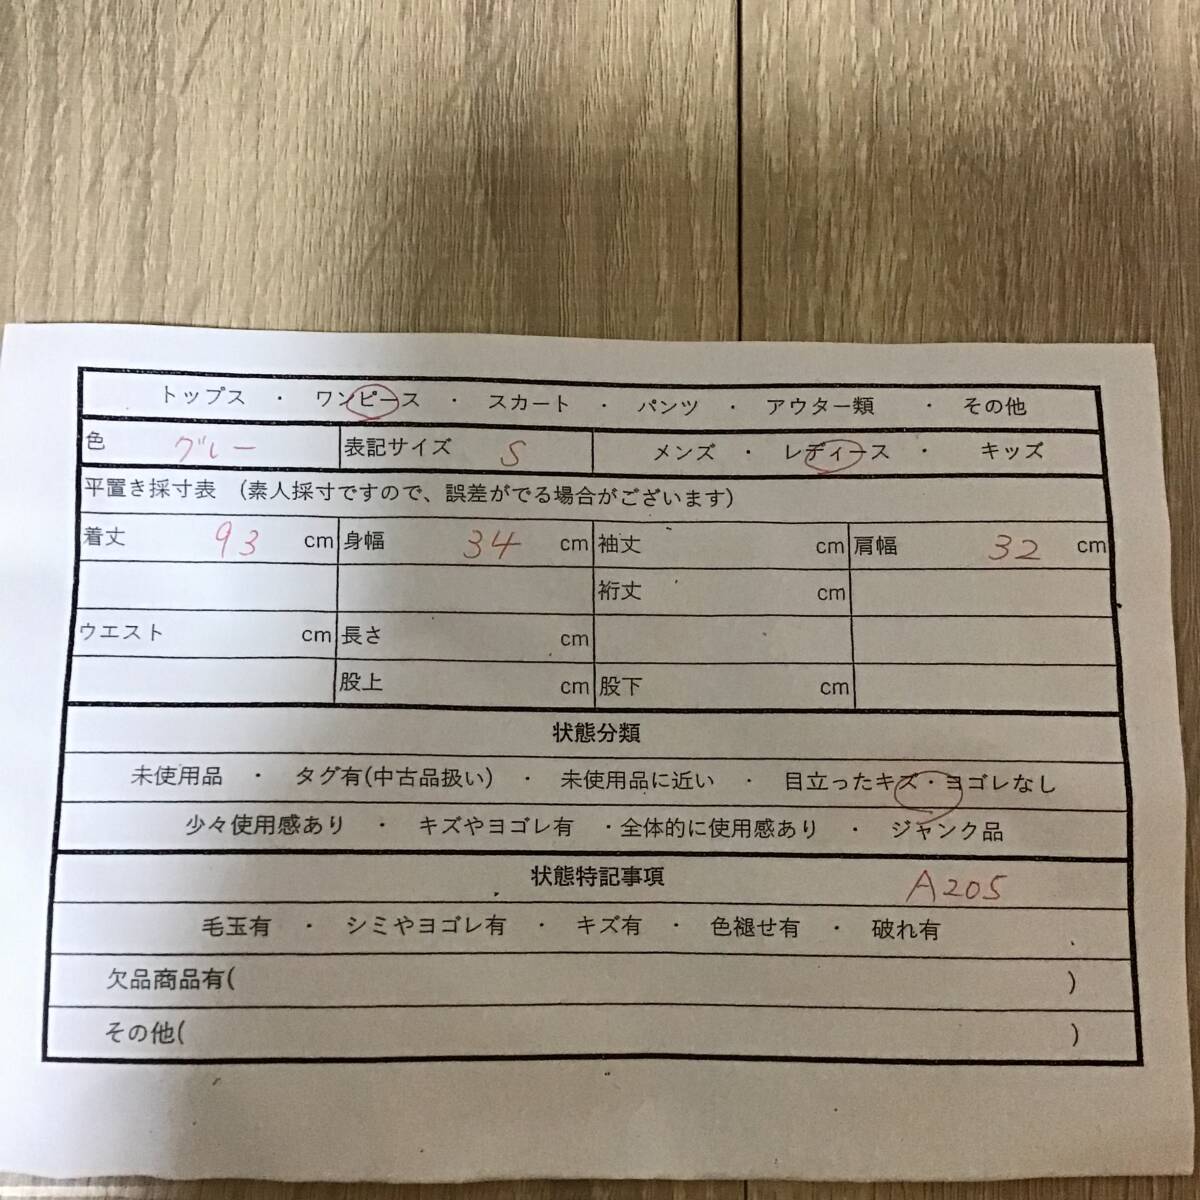 トップス ・ ワンピース ・ スカート ・ パンツ ・ アウター類 ・ その他
色 グレー 表記サイズ S メンズ ・ レディース ・ キッズ
平置き採寸表 (素人採寸ですので、誤差がでる場合がございます)
着丈 93 cm 身幅 34 cm 袖丈 cm 肩幅 32 cm
裄丈 cm
ウエスト cm 長さ cm
股上 cm 股下 cm
状態分類
未使用品 ・ タグ有(中古品扱い) ・ 未使用品に近い ・ 目立ったキズ・ヨゴレなし
少々使用感あり ・ キズやヨゴレ有 ・全体的に使用感あり ・ ジャンク品
状態特記事項 A205
毛玉有 ・ シミやヨゴレ有 ・ キズ有 ・ 色褪せ有 ・ 破れ有
欠品商品有( )
その他( )